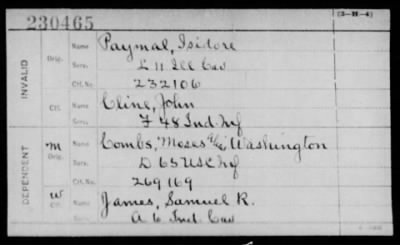 230465
(3-H-4)
INVALID
Orig.
Name Paymal, Isidore
Serv. L 11 Ill Cav
Ctf. No. 232106
Ctf.
Name Cline, John
Serv. F 48 Ind. Inf
DEPENDENT
M
Orig.
Name Combs, Moses Washington
Serv. D 65 USC Inf
Ctf. No. 269169
W
Ctf.
Name James, Samuel R.
Serv. A 6 Ind. Cav